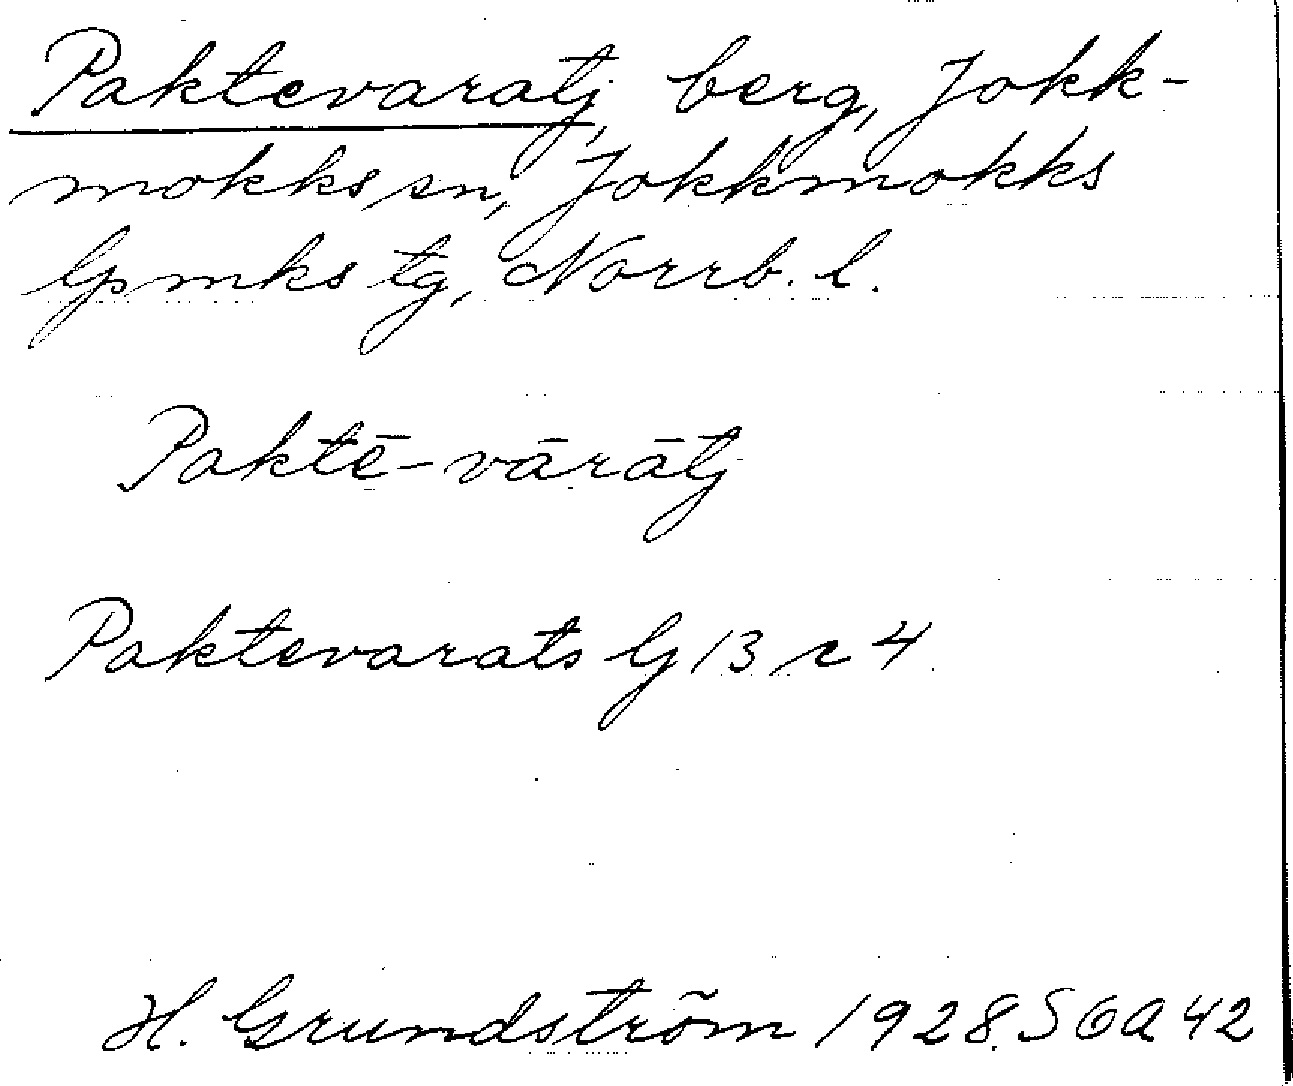 Paktevaratj, berg, Jokk-
mokks sn, Jokkmokks
lpmks tg, Norrb. l.
Paktē-vārātj
Paktevarats G 13 r 4
H. Grundström 1928. SOA 42